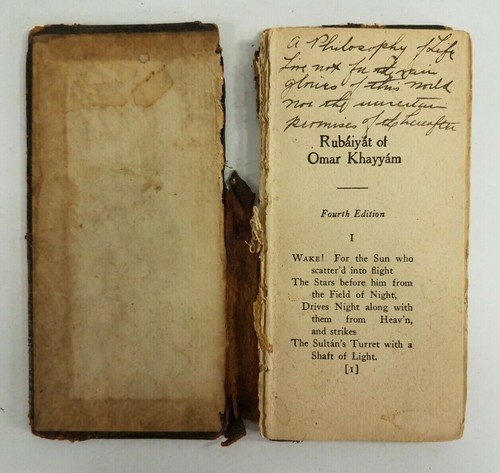 A Philosophy of Life
Live not for the vain
glories of this world
nor the uncertain
promises of the hereafter
Rubáiyát of
Omar Khayyám
Fourth Edition
I
WAKE! For the Sun who
scatter'd into flight
The Stars before him from
the Field of Night,
Drives Night along with
them from Heav'n,
and strikes
The Sultán's Turret with a
Shaft of Light.
[1]